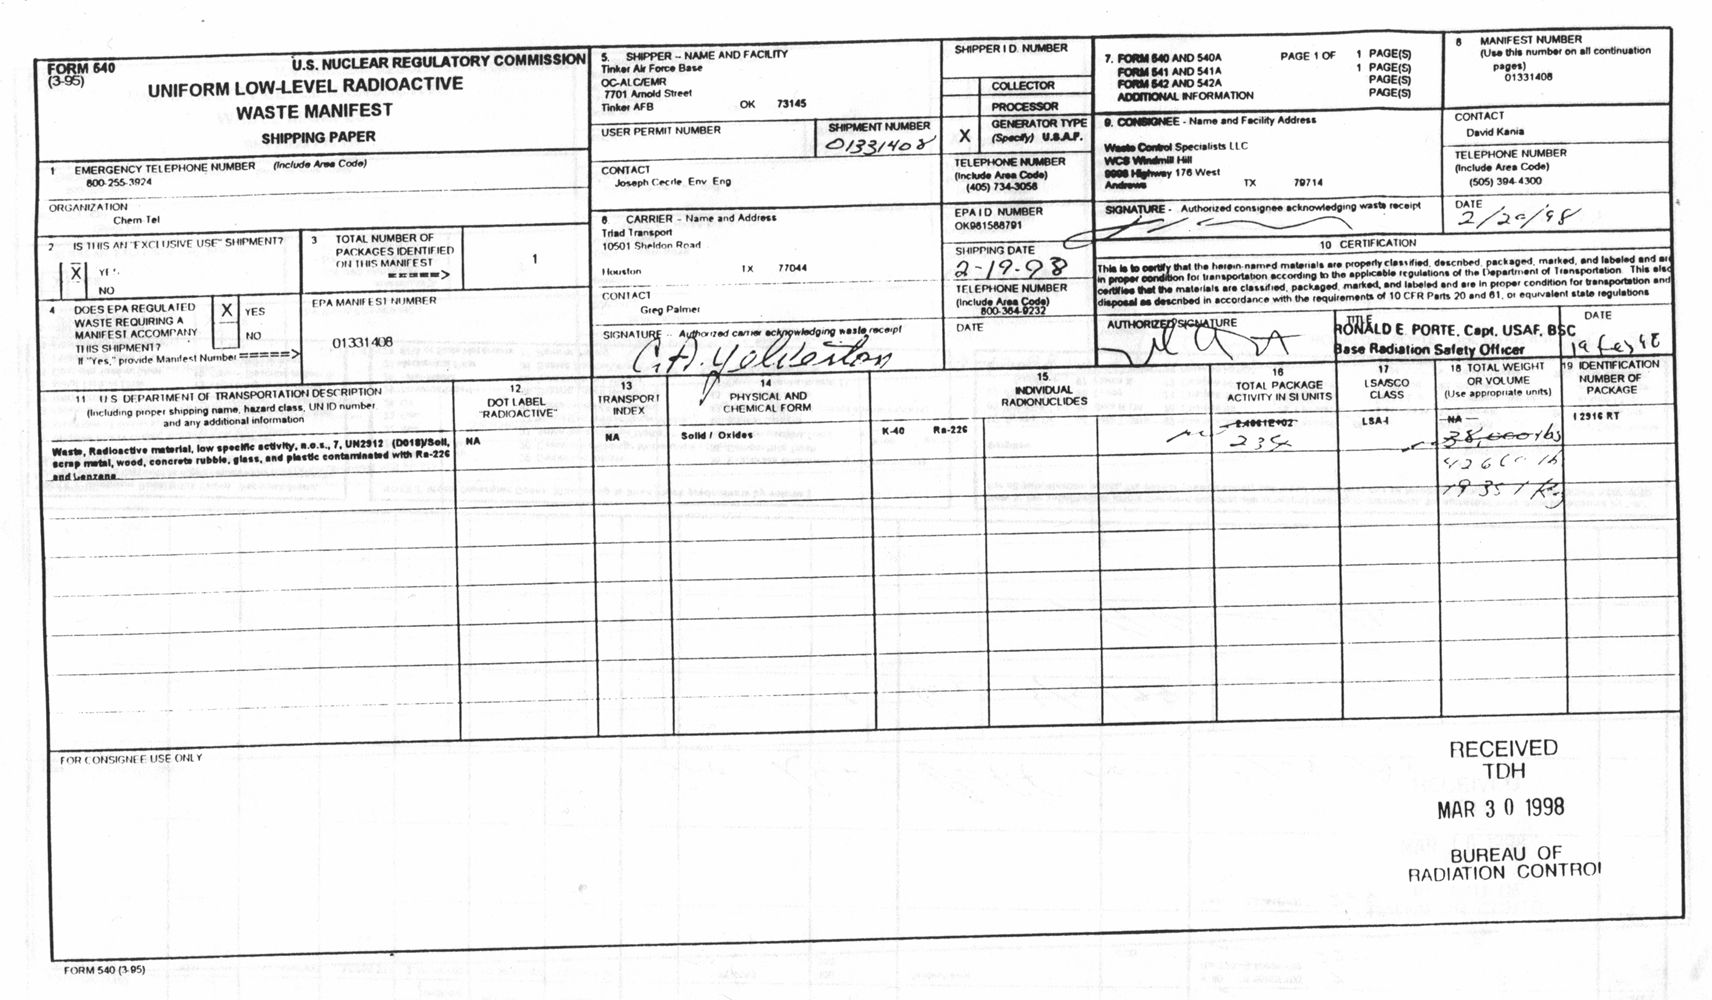 FORM 540
(3-95)
U.S. NUCLEAR REGULATORY COMMISSION
UNIFORM LOW-LEVEL RADIOACTIVE
WASTE MANIFEST
SHIPPING PAPER
1 EMERGENCY TELEPHONE NUMBER (Include Area Code)
800-255-3924
ORGANIZATION
Chem Tel
2 IS THIS AN "EXCLUSIVE USE" SHIPMENT?
X YES
NO
3 TOTAL NUMBER OF
PACKAGES IDENTIFIED
ON THIS MANIFEST
=====>
1
4 DOES EPA REGULATED
WASTE REQUIRING A
MANIFEST ACCOMPANY
THIS SHIPMENT?
If "Yes," provide Manifest Number =====>
X YES
NO
EPA MANIFEST NUMBER
01331408
5. SHIPPER -- NAME AND FACILITY
Tinker Air Force Base
OC-ALC/EMR
7701 Arnold Street
Tinker AFB OK 73145
USER PERMIT NUMBER
SHIPMENT NUMBER
01331408
CONTACT
Joseph Cecrle Env Eng
6 CARRIER - Name and Address
Triad Transport
10501 Sheldon Road
Houston TX 77044
CONTACT
Greg Palmer
SIGNATURE -- Authorized carrier acknowledging waste receipt
C.A. Yelverton
SHIPPER I D. NUMBER
COLLECTOR
PROCESSOR
X GENERATOR TYPE
(Specify) U.S.A.F.
TELEPHONE NUMBER
(Include Area Code)
(405) 734-3058
EPA I D NUMBER
OK981588791
SHIPPING DATE
2-19-98
TELEPHONE NUMBER
(Include Area Code)
800-364-9232
DATE
7. FORM 540 AND 540A PAGE 1 OF 1 PAGE(S)
FORM 541 AND 541A 1 PAGE(S)
FORM 542 AND 542A PAGE(S)
ADDITIONAL INFORMATION PAGE(S)
8 MANIFEST NUMBER
(Use this number on all continuation
pages)
01331408
9. CONSIGNEE - Name and Facility Address
Waste Control Specialists LLC
WCS Windmill Hill
9998 Highway 176 West
Andrews TX 79714
CONTACT
David Kania
TELEPHONE NUMBER
(Include Area Code)
(505) 394-4300
SIGNATURE - Authorized consignee acknowledging waste receipt
DATE
2/20/98
10 CERTIFICATION
This is to certify that the herein-named materials are properly classified, described, packaged, marked, and labeled and are
in proper condition for transportation according to the applicable regulations of the Department of Transportation. This also
certifies that the materials are classified, packaged, marked, and labeled and are in proper condition for transportation and
disposal as described in accordance with the requirements of 10 CFR Parts 20 and 61, or equivalent state regulations
AUTHORIZED SIGNATURE
TITLE
RONALD E. PORTE, Capt, USAF, BSC
Base Radiation Safety Officer
DATE
19 Feb 98
11 U S DEPARTMENT OF TRANSPORTATION DESCRIPTION
(Including proper shipping name, hazard class, UN ID number,
and any additional information
12
DOT LABEL
"RADIOACTIVE"
13
TRANSPORT
INDEX
14
PHYSICAL AND
CHEMICAL FORM
15.
INDIVIDUAL
RADIONUCLIDES
16
TOTAL PACKAGE
ACTIVITY IN SI UNITS
17
LSA/SCO
CLASS
18 TOTAL WEIGHT
OR VOLUME
(Use appropriate units)
19 IDENTIFICATION
NUMBER OF
PACKAGE
Waste, Radioactive material, low specific activity, n.o.s., 7, UN2912 (D018)/Soil,
scrap metal, wood, concrete rubble, glass, and plastic contaminated with Ra-226
and
NA
NA
Solid / Oxides
K-40 Ra-226
234
LSA-I
NA
38,000 lbs
42660 lb
19351 Kg
12916 RT
FOR CONSIGNEE USE ONLY
RECEIVED
TDH
MAR 30 1998
BUREAU OF
RADIATION CONTROL
FORM 540 (3-95)